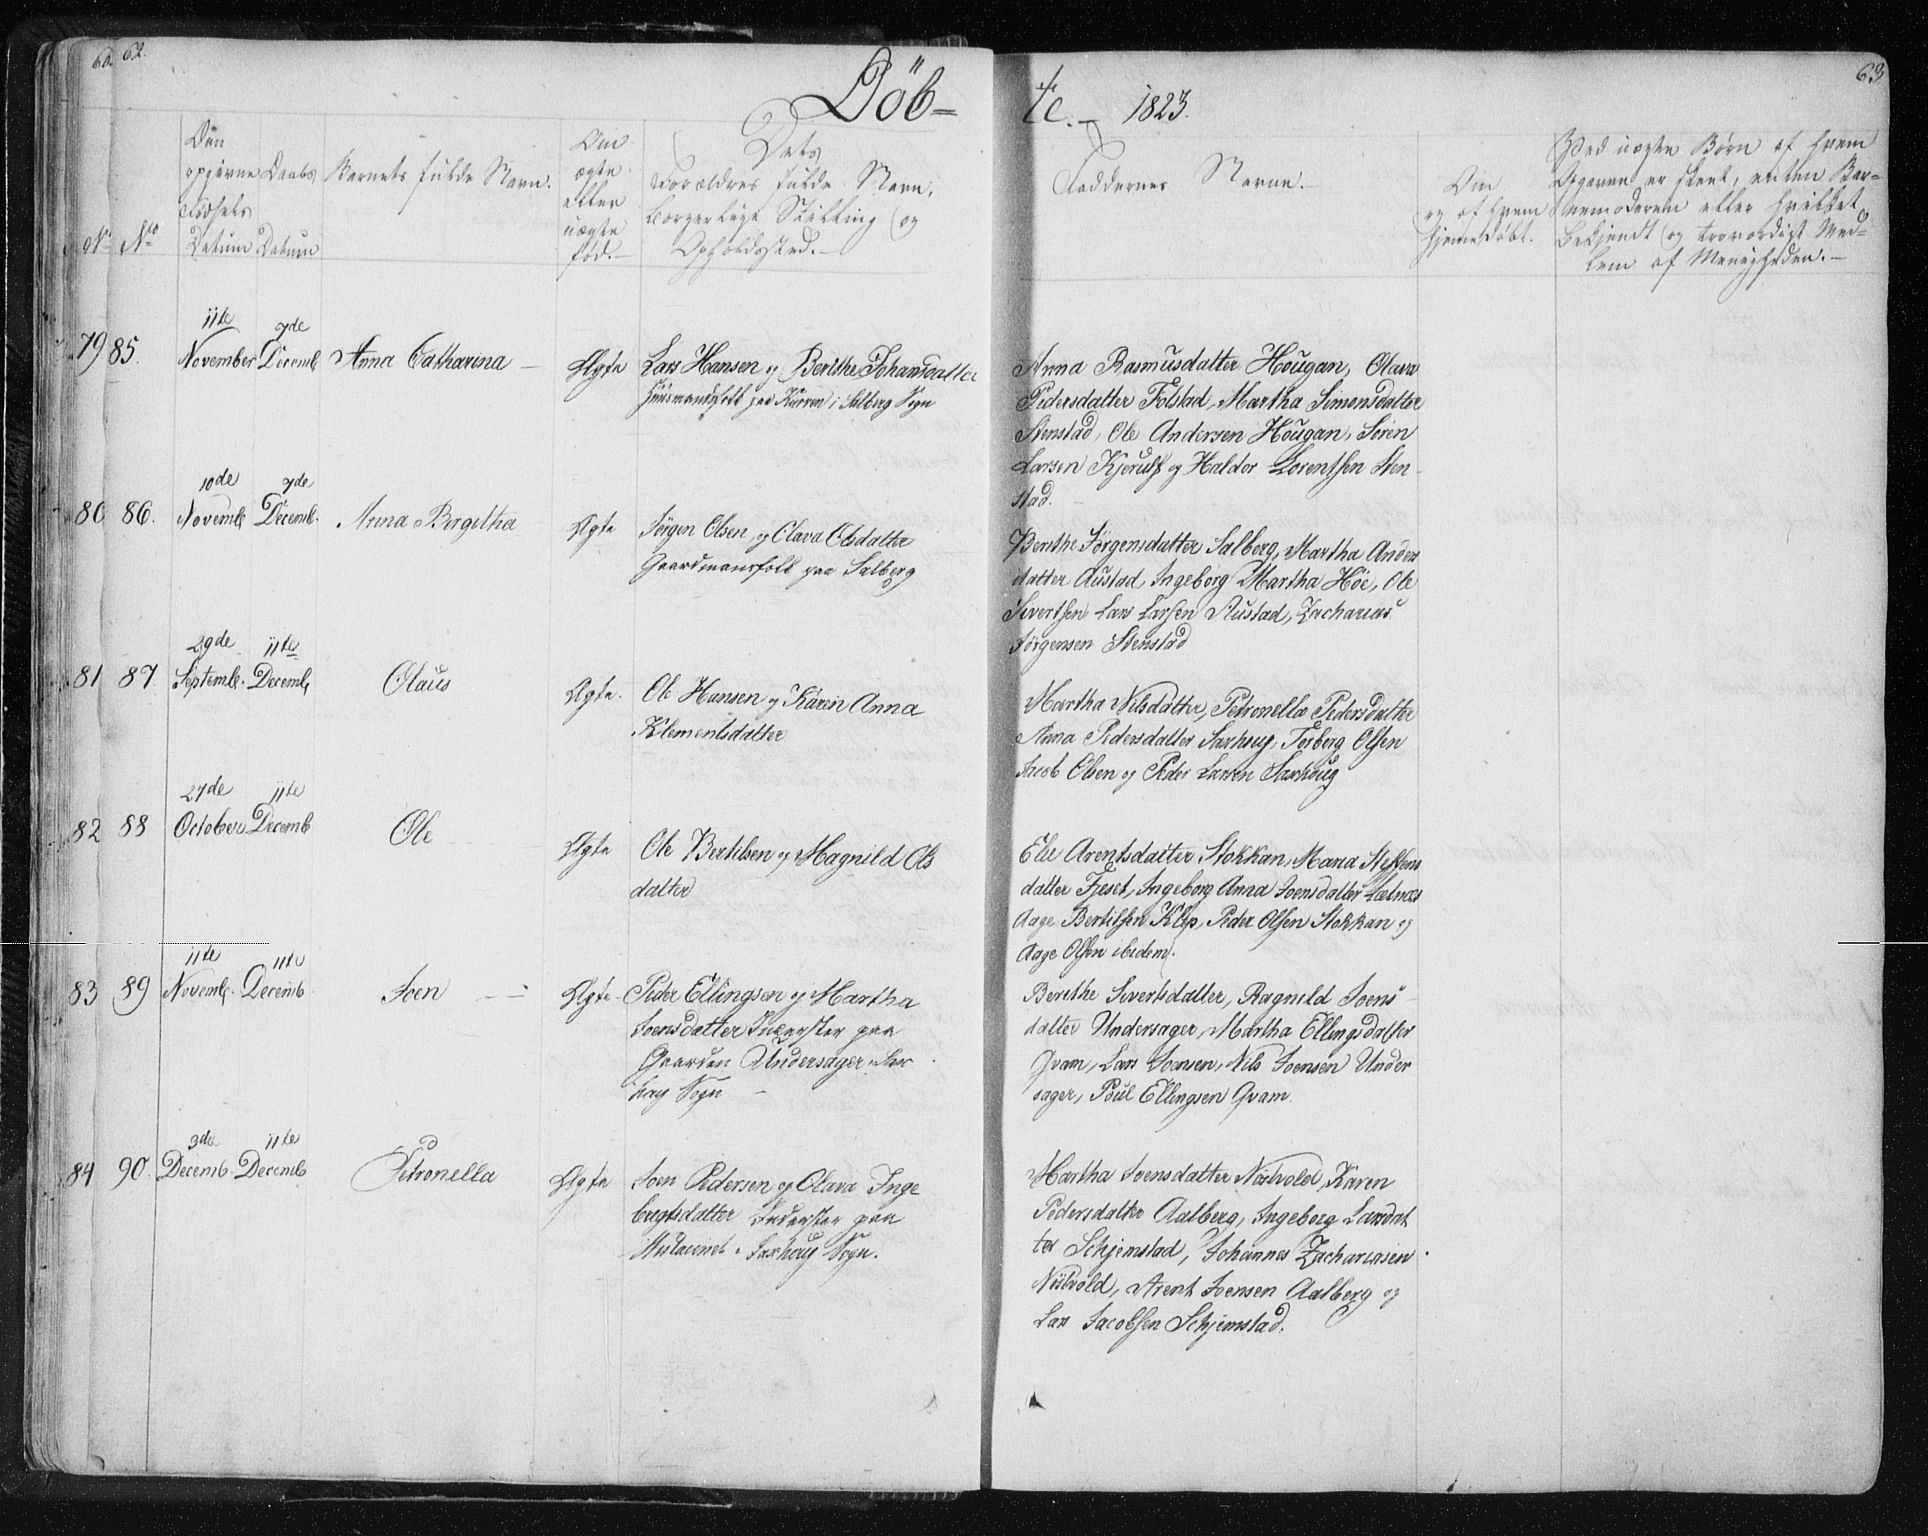 62.
63
Döb-
te. - 1823.
No No
Den opgivne Fødsels Datum
Daabs Datum
Barnets fulde Navn.
Om ægte eller uægte fød.-
Dets
Forældres fulde Navn,
borgerlige Stilling og
Opholdssted.-
Faddernes Navne.-
Om
og af hvem
hjemedøbt.
Ved uægte Børn af hvem
Angaven er skeet, enten Bar-
nemoderen eller hvilket
bekjendt og troværdigt Med-
lem af Menigheden.-
79 85. 11te November 7de Decemb Anna Catharina - Ægte
Lars Hansen og Berithe Johansdatter
Huusmandsfolk paa i Salberg Sogn
Anna Rasmusdatter Hougan, Olava
Pedersdatter Folstad, Martha Simonsdatter
Stenstad, Ole Andersen Hougan, Sören
Larsen Kjerulf og Haldor Lorentsen Sten-
stad.
80 86. 10de Novemb 7de Decemb. Anna Bergitha Ægte
Jörgen Olsen og Olava Olsdatter
Gaardmansfolk paa Salberg
Berithe Jörgensdatter Salberg, Martha Anders
datter Austad, Ingeborg Martha Höe, Ole
Sivertsen Lars Larsen Austad, Zacharias
Jörgensen Stenstad
81 87 29de Septemb. 11te Decemb Olaus Ægte.
Ole Hansen og Karen Anna
Klementsdatter
Martha Nilsdatter, Petronella Pedersdatter
Anna Pedersdatter Saxhoug, Torberg Olsen
Jacob Olsen og Peder Larsen Saxhoug
82 88 27de October 11te Decemb Ole Ægte
Ole Bertelsen og Magnild Ols
datter
Elie Arentsdatter Stokkan, Maria Steffens
datter Fjeset, Ingeborg Anna Joensdatter
Aage Bertelsen Klep, Peder Olsen Stokkan og
Aage Olsen ibidem.
83 89 11te Novemb. 11te Decemb Joen - Ægte
Peder Ellingsen og Martha
Joensdatter Inderster paa
Gaarden Undersager Sax
houg Sogn -
Berithe Sivertsdatter, Ragnild Joens
datter Undersager, Martha Ellingsdatter
Qvam, Lars Joensen, Nils Joensen Under
sager, Poul Ellingsen Qvam.
84 90. 3de Decemb. 11te Decemb Petronella Ægte
Joen Pedersen og Olava Inge
brigtsdatter Inderster paa
i Saxhoug Sogn.
Martha Joensdatter Nöstvold, Karen
Pedersdatter Aalberg, Ingeborg Larsdat
ter Schjemstad, Johannes Zachariasen
Nöstvold, Arent Joensen Aalberg og
Lars Jacobsen Schjemstad.